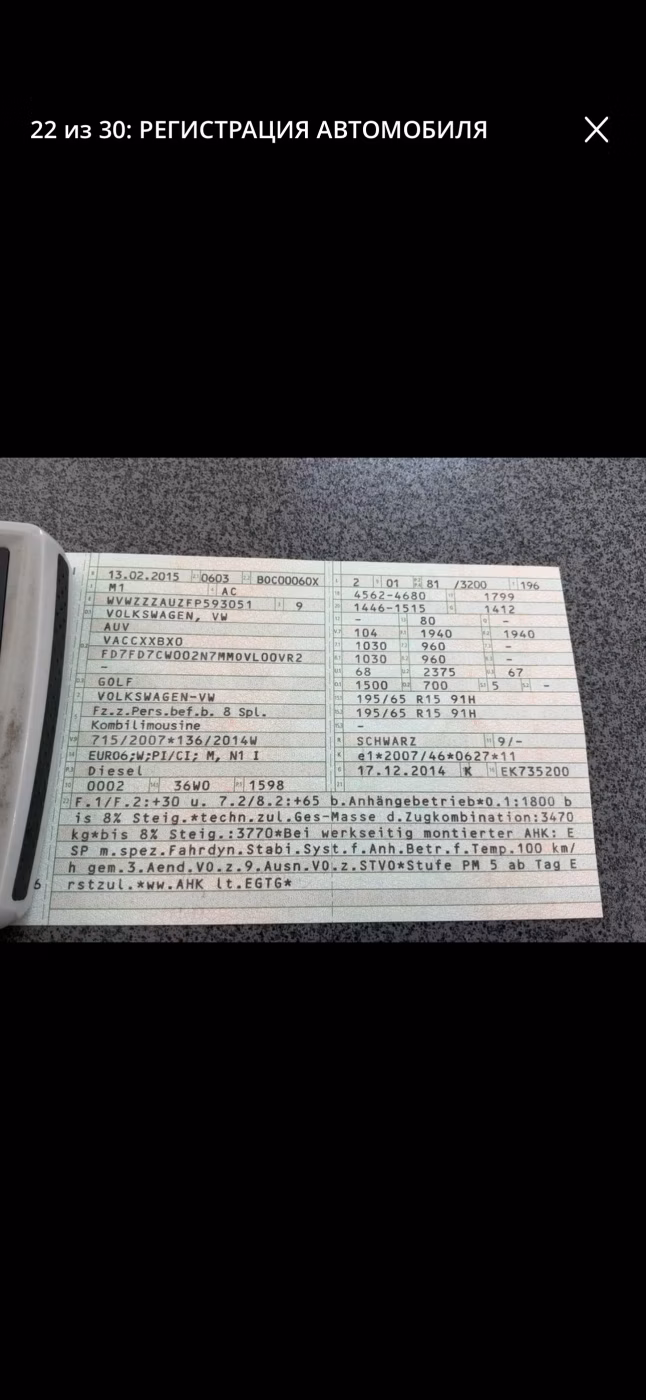 22 из 30: РЕГИСТРАЦИЯ АВТОМОБИЛЯ
13.02.2015 0603 B0C00060X 2 01 81 /3200 196
M1 AC 4562-4680 1799
WVWZZZAUZFP593051 9 1446-1515 1412
VOLKSWAGEN, VW - 80 -
AUV 104 1940 1940
VACCXXBX0 1030 960 -
FD7FD7CW002N7MM0VL00VR2 1030 960 -
- 68 2375 67
GOLF 1500 700 5 -
VOLKSWAGEN-VW 195/65 R15 91H
Fz.z.Pers.bef.b. 8 Spl. 195/65 R15 91H
Kombilimousine -
715/2007*136/2014W SCHWARZ 9/-
EURO6;W;PI/CI; M, N1 I e1*2007/46*0627*11
Diesel 17.12.2014 K EK735200
0002 36W0 1598
F.1/F.2:+30 u. 7.2/8.2:+65 b.Anhängebetrieb*0.1:1800 b
is 8% Steig.*techn.zul.Ges-Masse d.Zugkombination:3470
kg*bis 8% Steig.:3770*Bei werkseitig montierter AHK: E
SP m.spez.Fahrdyn.Stabi.Syst.f.Anh.Betr.f.Temp.100 km/
h gem.3.Aend.VO.z.9.Ausn.VO.z.STVO*Stufe PM 5 ab Tag E
6 rstzul.*ww.AHK lt.EGTG*